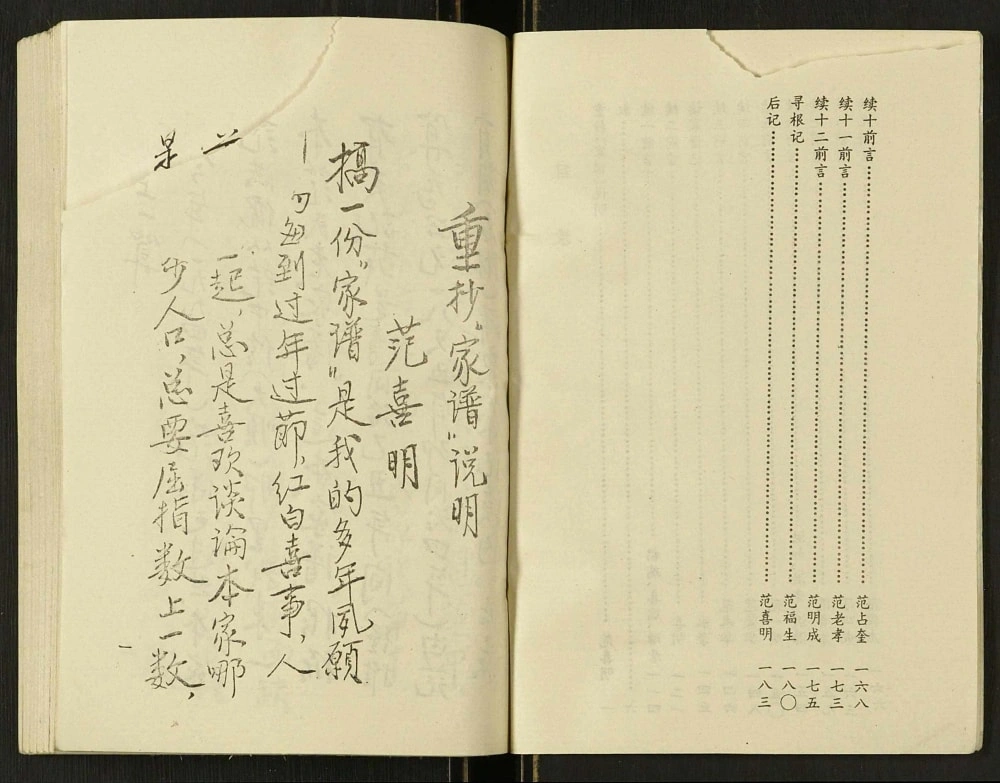 续十前言……………………范占奎 一六八
续十一前言……………………范老孝 一七三
续十二前言……………………范明成 一七五
寻根记……………………范福生 一八〇
后记……………………范喜明 一八三
重抄“家谱”说明
范喜明
搞一份“家谱”是我的多年夙願
每到过年过節,红白喜事,人
一起,总是喜欢谈论本家哪
少人口,总要屈指数上一数,